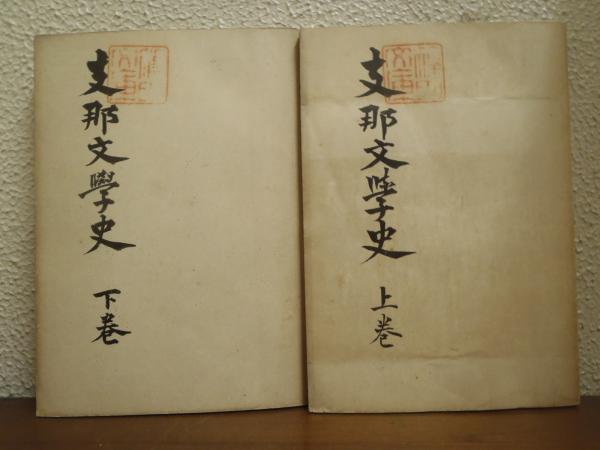 支那文學史
上巻
支那文學史
下巻